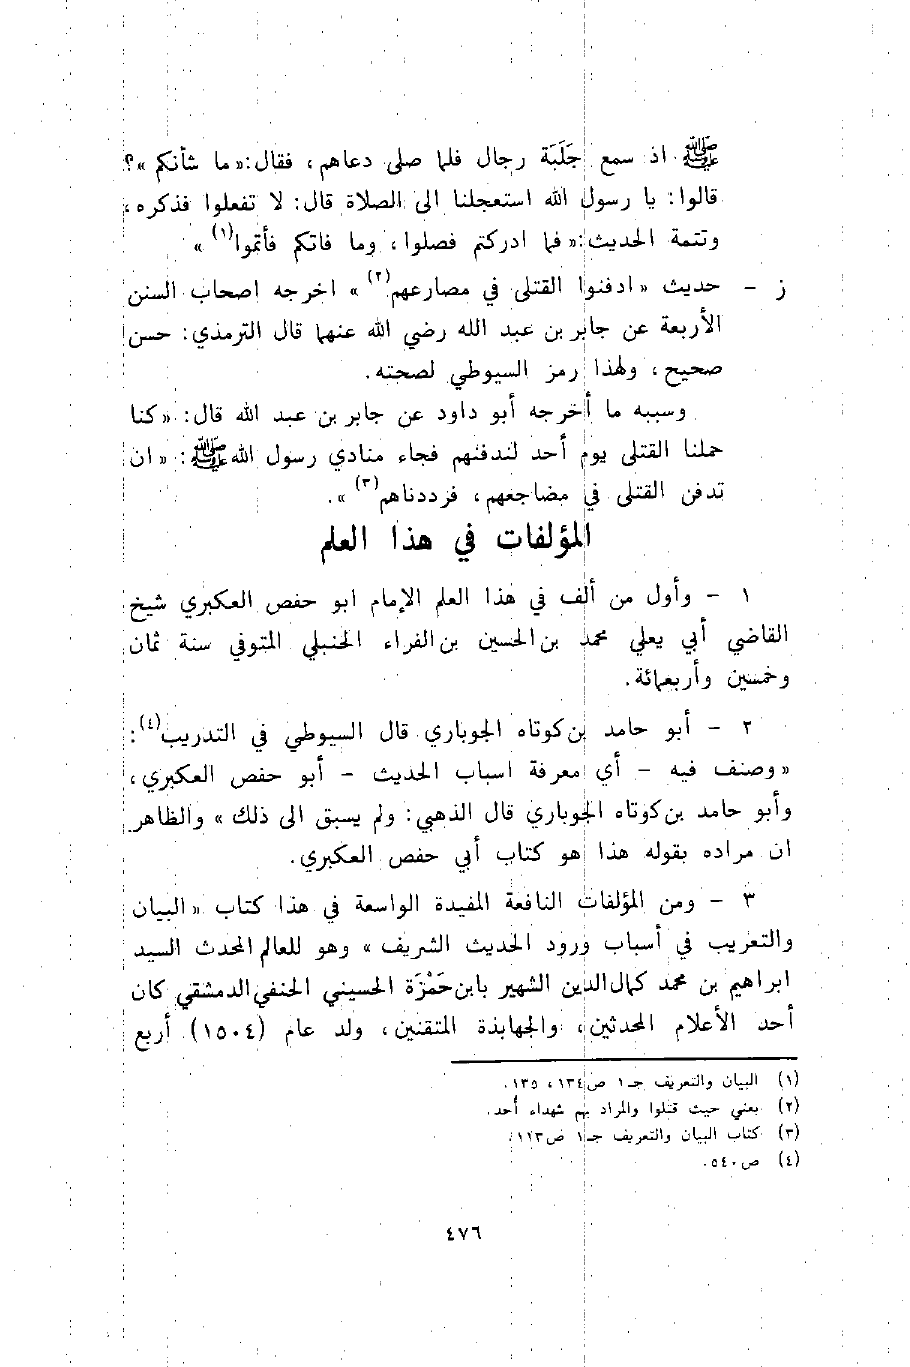 ﷺ اذ سمع جَلَبَة رجال فلما صلى دعاهم، فقال: «ما شأنكم»؟
قالوا: يا رسول الله استعجلنا الى الصلاة قال: لا تفعلوا فذكره،
وتتمة الحديث: «فما ادركتم فصلوا، وما فاتكم فأتموا(١)»
ز - حديث «ادفنوا القتلى في مصارعهم(٢)» اخرجه اصحاب السنن
الأربعة عن جابر بن عبد الله رضي الله عنهما قال الترمذي: حسن
صحيح، ولهذا رمز السيوطي لصحته.
وسببه ما أخرجه أبو داود عن جابر بن عبد الله قال: «كنا
حملنا القتلى يوم أحد لندفنهم فجاء منادي رسول الله ﷺ: «ان
تدفن القتلى في مضاجعهم، فرددناهم(٣)».
المؤلفات في هذا العلم
١ - وأول من ألف في هذا العلم الإمام ابو حفص العكبري شيخ
القاضي أبي يعلي محمد بن الحسين بن الفراء الحنبلي المتوفي سنة ثمان
وخمسين وأربعمائة.
٢ - أبو حامد بن كوتاه الجوباري قال السيوطي في التدريب(٤):
«وصنف فيه - أي معرفة اسباب الحديث - أبو حفص العكبري،
وأبو حامد بن كوتاه الجوباري قال الذهبي: ولم يسبق الى ذلك» والظاهر
ان مراده بقوله هذا هو كتاب أبي حفص العكبري.
٣ - ومن المؤلفات النافعة المفيدة الواسعة في هذا كتاب «البيان
والتعريب في أسباب ورود الحديث الشريف» وهو للعالم المحدث السيد
ابراهيم بن محمد كمال الدين الشهير بابن حَمْزَة الحسيني الحنفي الدمشقي كان
أحد الأعلام المحدثين، والجهابذة المتقنين، ولد عام (١٥٠٤) أربع
(١) البيان والتعريف جـ١ ص١٣٤، ١٣٥.
(٢) يعني حيث قتلوا والمراد بهم شهداء أُحد.
(٣) كتاب البيان والتعريف جـ١ ص١١٣.
(٤) ص٥٤٠.
٤٧٦